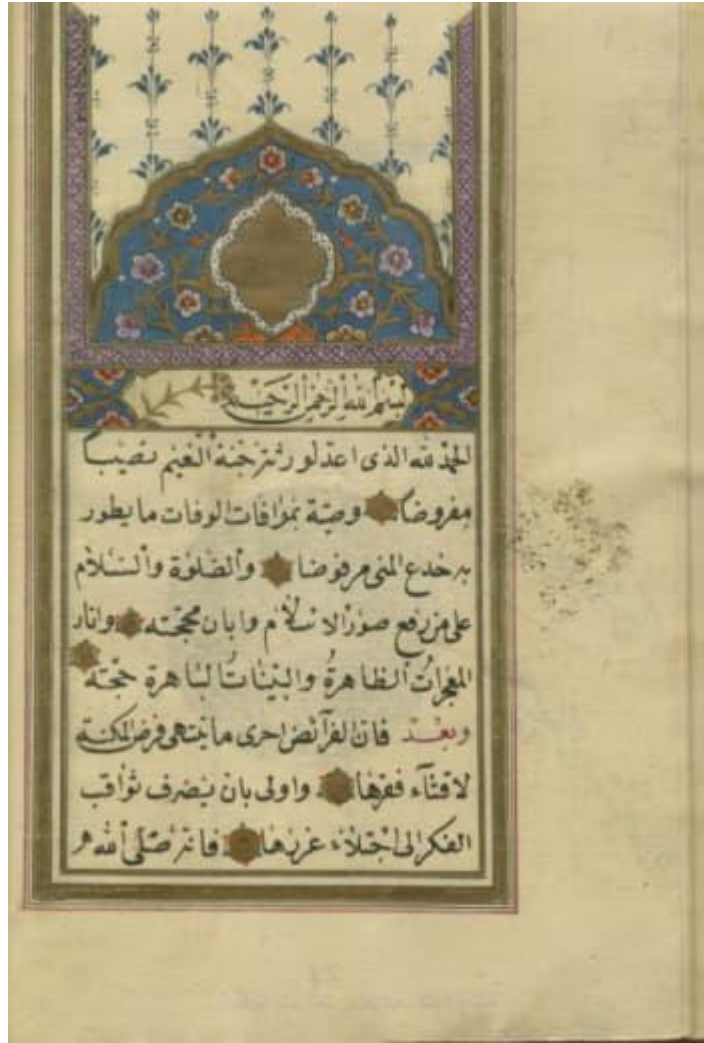 بسم الله الرحمن الرحيم
الحمد لله الذى اعد لورثة جنة النعيم نصيبا
مفروضا وصية بموافات الوفات ما يطور
به خدع المنى مرفوضا والصلوة والسلام
على من رفع صور الاسلام وابان محجته وانار
المعجزات الظاهرة والبينات الباهرة حجته
وبعد فان الفرائض احرى ما ينتهى فرض المكنة
لاقتناء فقرها واولى بان يصرف ثواقب
الفكر الى اجتلاء غررها فانه صلى الله